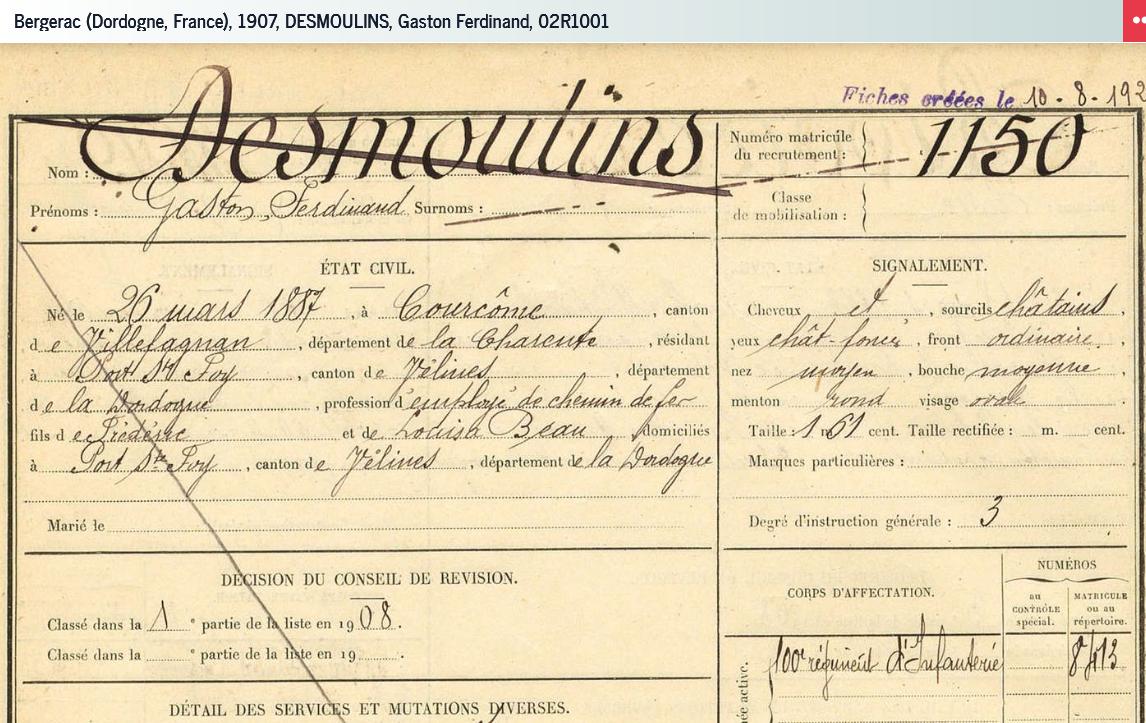 Bergerac (Dordogne, France), 1907, DESMOULINS, Gaston Ferdinand, 02R1001
Fiches créées le 10-8-192
Nom : Desmoulins
Numéro matricule du recrutement : 1150
Prénoms : Gaston, Ferdinand Surnoms :
Classe de mobilisation :
ÉTAT CIVIL.
Né le 26 mars 1887, à Courcôme, canton
de Villefagnan, département de la Charente, résidant
à Port Ste Foy, canton de Vélines, département
de la Dordogne, profession d'employé de chemin de fer
fils de Frédéric et de Louisa Beau domiciliés
à Port Ste Foy, canton de Vélines, département de la Dordogne
Marié le
SIGNALEMENT.
Cheveux et, sourcils châtains,
yeux chât-foncé, front ordinaire,
nez moyen, bouche moyenne,
menton rond visage ovale.
Taille : 1 m 61 cent. Taille rectifiée : m. cent.
Marques particulières :
Degré d'instruction générale : 3
DÉCISION DU CONSEIL DE REVISION.
Classé dans la 1e partie de la liste en 1908.
Classé dans la e partie de la liste en 19 .
DÉTAIL DES SERVICES ET MUTATIONS DIVERSES.
CORPS D'AFFECTATION.
NUMÉROS
au CONTRÔLE spécial.
MATRICULE ou au répertoire.
ée active.
100e régiment d'Infanterie
8413